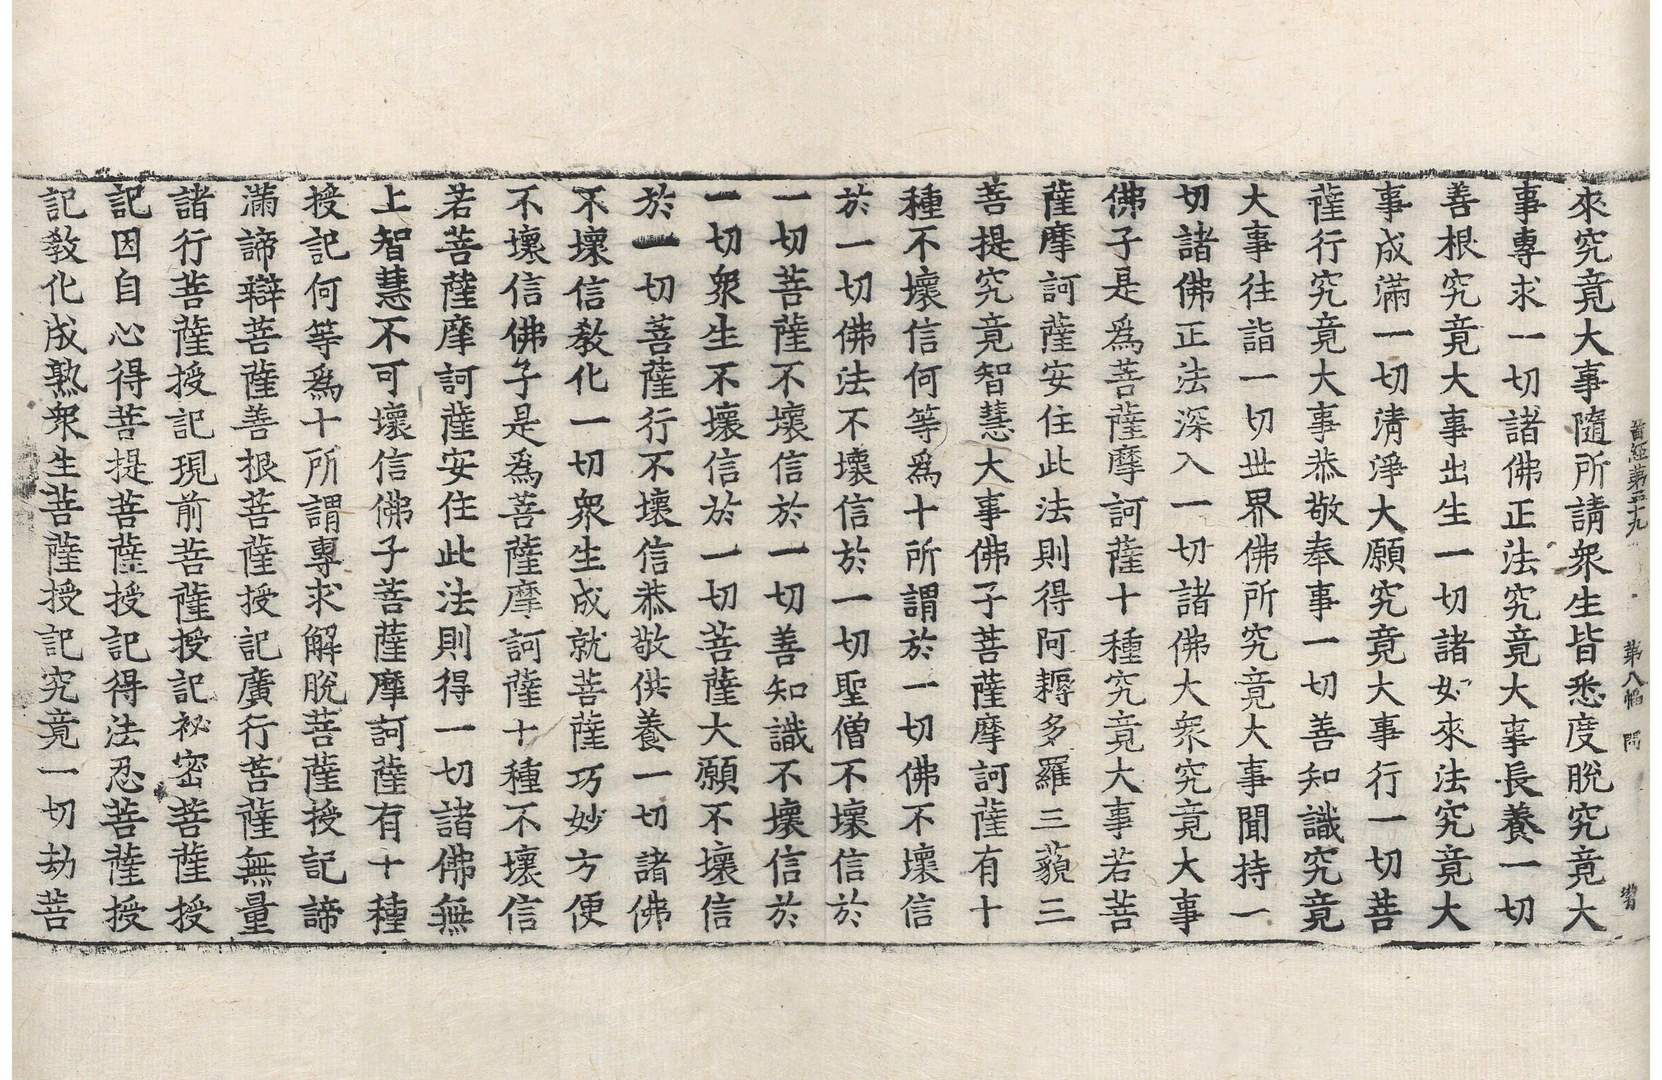 經第三十九 第八幅 問
來究竟大事隨所請衆生皆悉度脫究竟大
事專求一切諸佛正法究竟大事長養一切
善根究竟大事出生一切諸如來法究竟大
事成滿一切清淨大願究竟大事行一切菩
薩行究竟大事恭敬奉事一切善知識究竟
大事往詣一切世界佛所究竟大事聞持一
切諸佛正法深入一切諸佛大衆究竟大事
佛子是爲菩薩摩訶薩十種究竟大事若菩
薩摩訶薩安住此法則得阿耨多羅三藐三
菩提究竟智慧大事佛子菩薩摩訶薩有十
種不壞信何等爲十所謂於一切佛不壞信
於一切佛法不壞信於一切聖僧不壞信於
一切菩薩不壞信於一切善知識不壞信於
一切衆生不壞信於一切菩薩大願不壞信
於一切菩薩行不壞信恭敬供養一切諸佛
不壞信教化一切衆生成就菩薩巧妙方便
不壞信佛子是爲菩薩摩訶薩十種不壞信
若菩薩摩訶薩安住此法則得一切諸佛無
上智慧不可壞信佛子菩薩摩訶薩有十種
授記何等爲十所謂專求解脫菩薩授記諦
滿諦辯菩薩善根菩薩授記廣行菩薩無量
諸行菩薩授記現前菩薩授記祕密菩薩授
記因自心得菩提菩薩授記得法忍菩薩授
記教化成熟衆生菩薩授記究竟一切劫菩